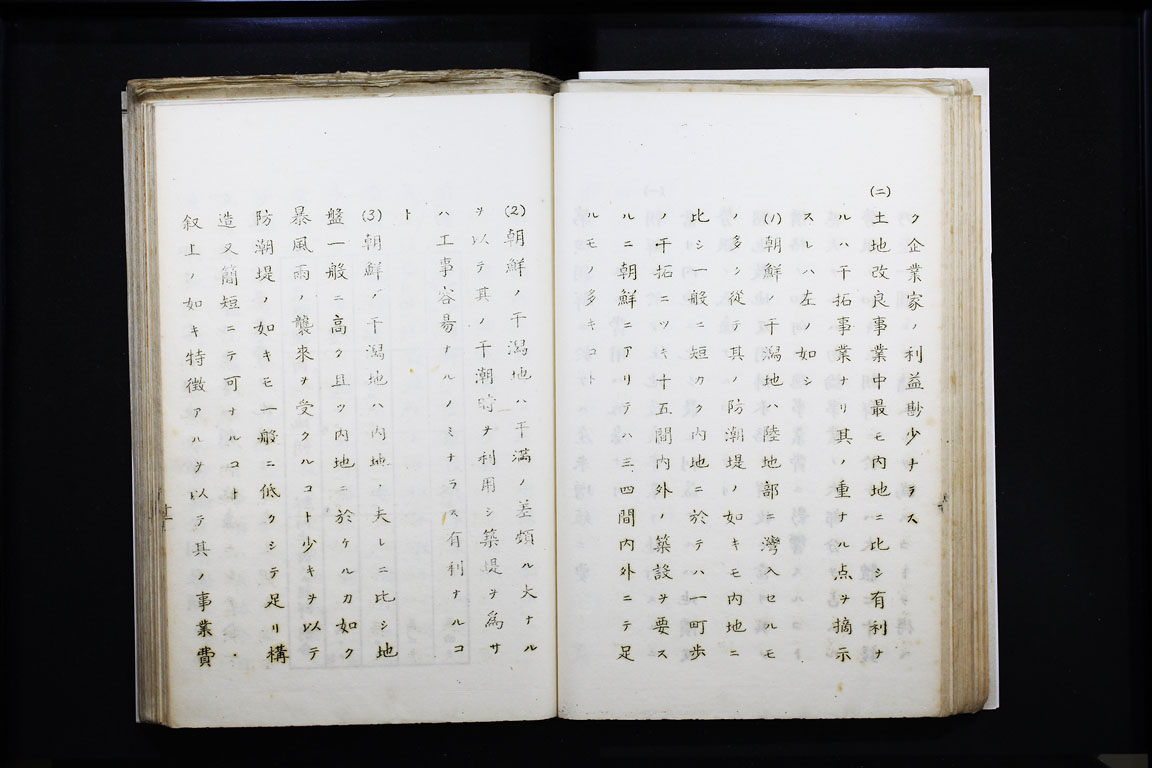 ク企業家ノ利益尠少ナラス
(二)土地改良事業中最モ内地ニ比シ有利ナ
ルハ干拓事業ナリ其ノ重ナル点ヲ摘示
スレハ左ノ如シ
(1)朝鮮ノ干潟地ハ陸地部ニ湾入セルモ
ノ多ク従テ其ノ防潮堤ノ如キモ内地ニ
比シ一般ニ短カク内地ニ於テハ一町歩
ノ干拓ニツキ十五間内外ノ築設ヲ要ス
ルニ朝鮮ニアリテハ三四間内外ニテ足
ルモノ多キコト
(2)朝鮮ノ干潟地ハ干満ノ差頗ル大ナル
ヲ以テ其ノ干潮時ヲ利用シ築堤ヲ為サ
ハ工事容易ナルノミナラス有利ナルコ
ト
(3)朝鮮ノ干潟地ハ内地ノ夫レニ比シ地
盤一般ニ高ク且ツ内地ニ於ケルカ如ク
暴風雨ノ襲来ヲ受クルコト少キヲ以テ
防潮堤ノ如キモ一般ニ低クシテ足リ構
造又簡短ニテ可ナルコト
叙上ノ如キ特徴アルヲ以テ其ノ事業費